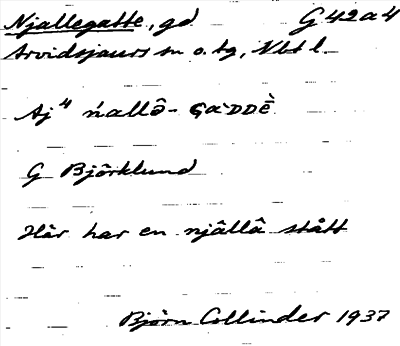 Njallegatte, gd G 42 a 4
Arvidsjaurs sn o. tg, Vbt l.
Aj⁴ ńallô- GaˋDDÈ
G Björklund
Här har en njâllâ stått
Björn Collinder 1937